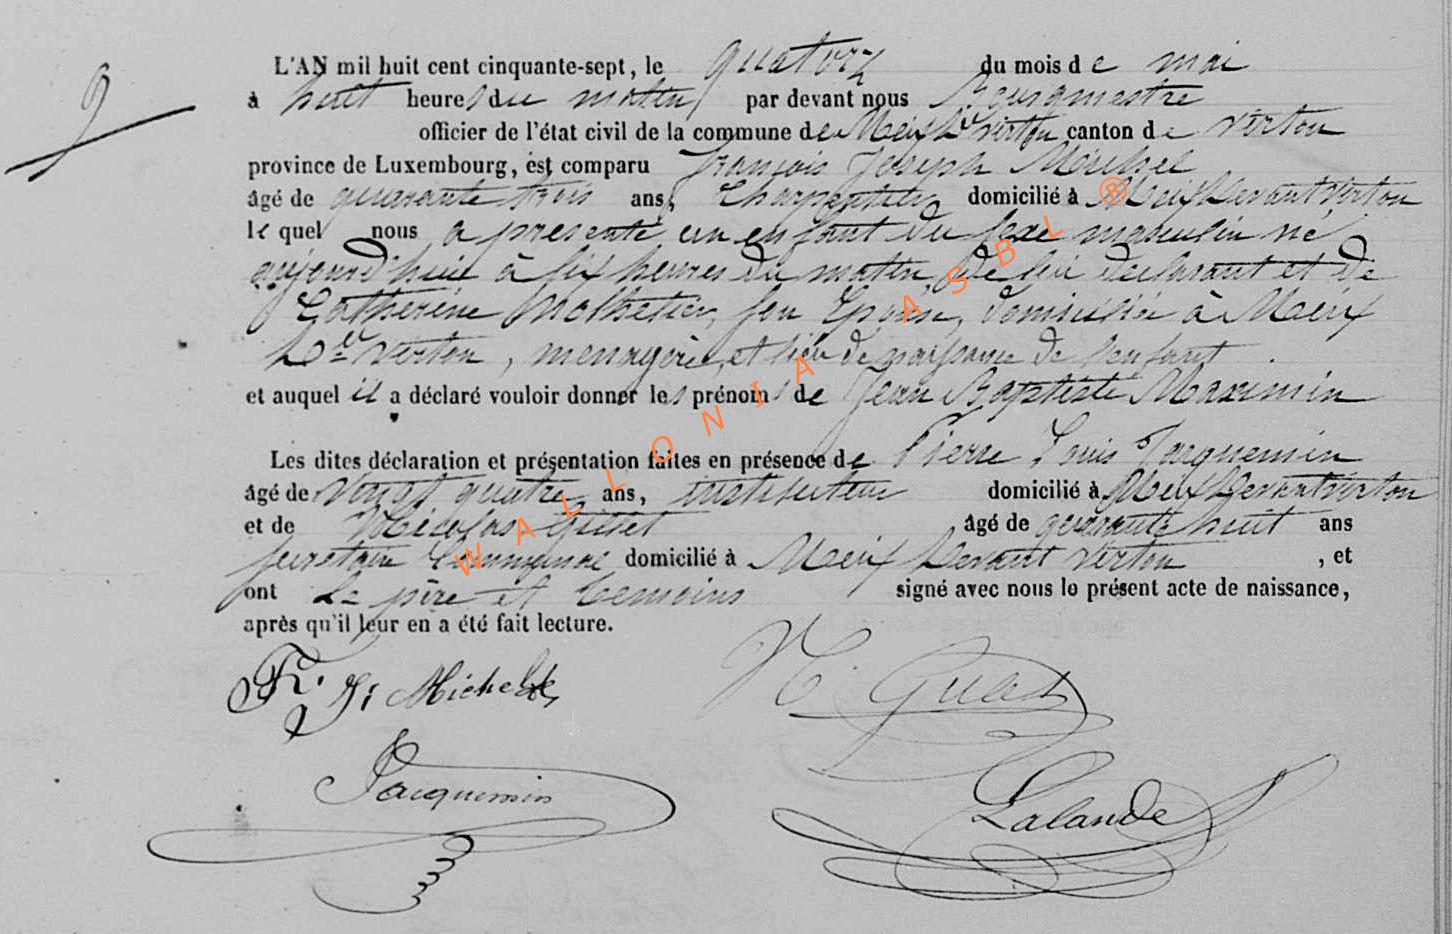 9
L'AN mil huit cent cinquante-sept, le quatorz du mois de mai
à huit heures du matin par devant nous Bourgmestre
officier de l'état civil de la commune de Meix Dt virton canton de virton
province de Luxembourg, est comparu François Joseph Michel
âgé de quarante trois ans, Charpentier domicilié à Meix Devant virton
le quel nous a presenté un enfant du sexe masculin né
aujourd'huie à six heures du matin, de lui declarant et de
Catherine feu Epouse, domiciliée à Meix
Dt virton, menagère, et lieu de naissance de l'enfant.
et auquel il a déclaré vouloir donner les prénoms de Jean Baptiste Maximin
Les dites déclaration et présentation faites en présence de Pierre Louis Jacquemin
âgé de vingt quatre ans, instituteur domicilié à Meix Devant virton
et de Nicolas Gillet âgé de quarante huit ans
secretaire Communal domicilié à Meix Devant virton, et
ont Le père et temoins signé avec nous le présent acte de naissance,
après qu'il leur en a été fait lecture.
Fr. J. Michel N. Gillet
Jacquemin
Lalande
WALLONIA ASBL ®